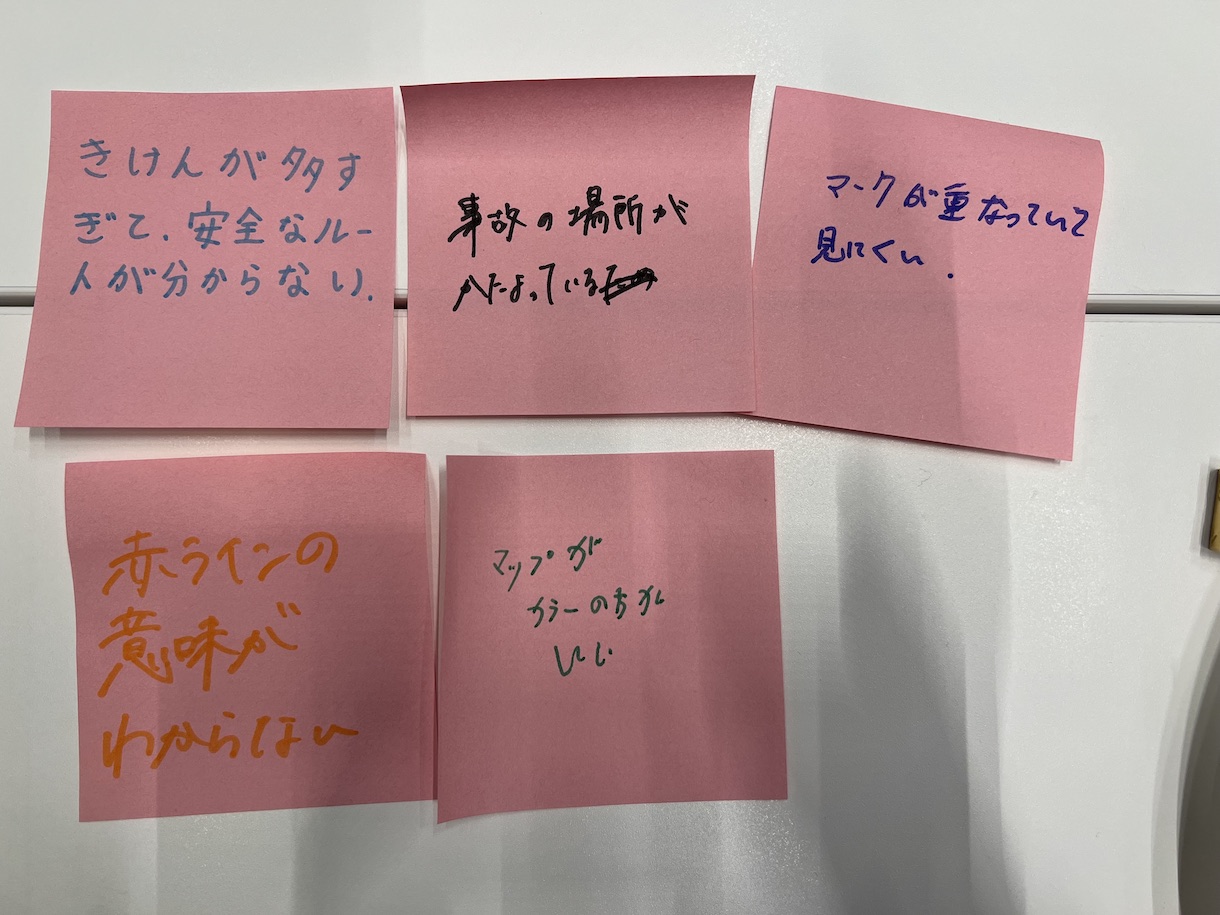 きけんが多す
ぎて、安全なルー
トが分からない。
事故の場所が
かたよっている
マークが重なっていて
見にくい.
赤ラインの
意味が
わからない
マップが
カラーの方が
いい